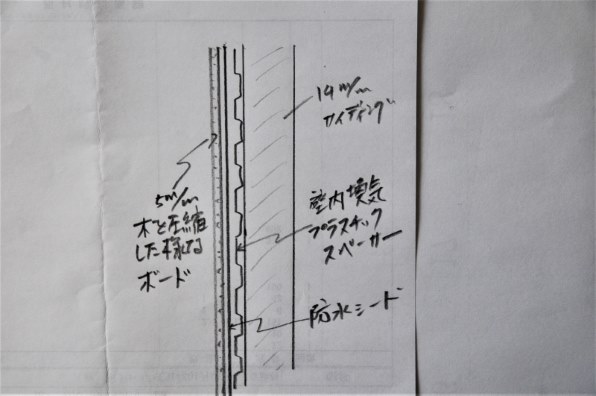 14m/m
サイディング
5m/m
木を圧縮
した様な
ボード
壁内換気
プラスチック
スペーサー
防水シート